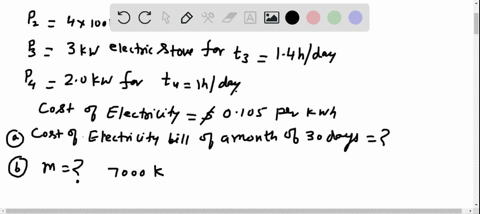 P₂ = 4×100
P₃ = 3 kW electric stove for t₃ = 1.4h/day
P₄ = 2.0 kW for t₄ = 1h/day
Cost of Electricity = $ 0.105 per kWh
(a) Cost of Electricity bill of a month of 30 days = ?
(b) m = ? 7000 k